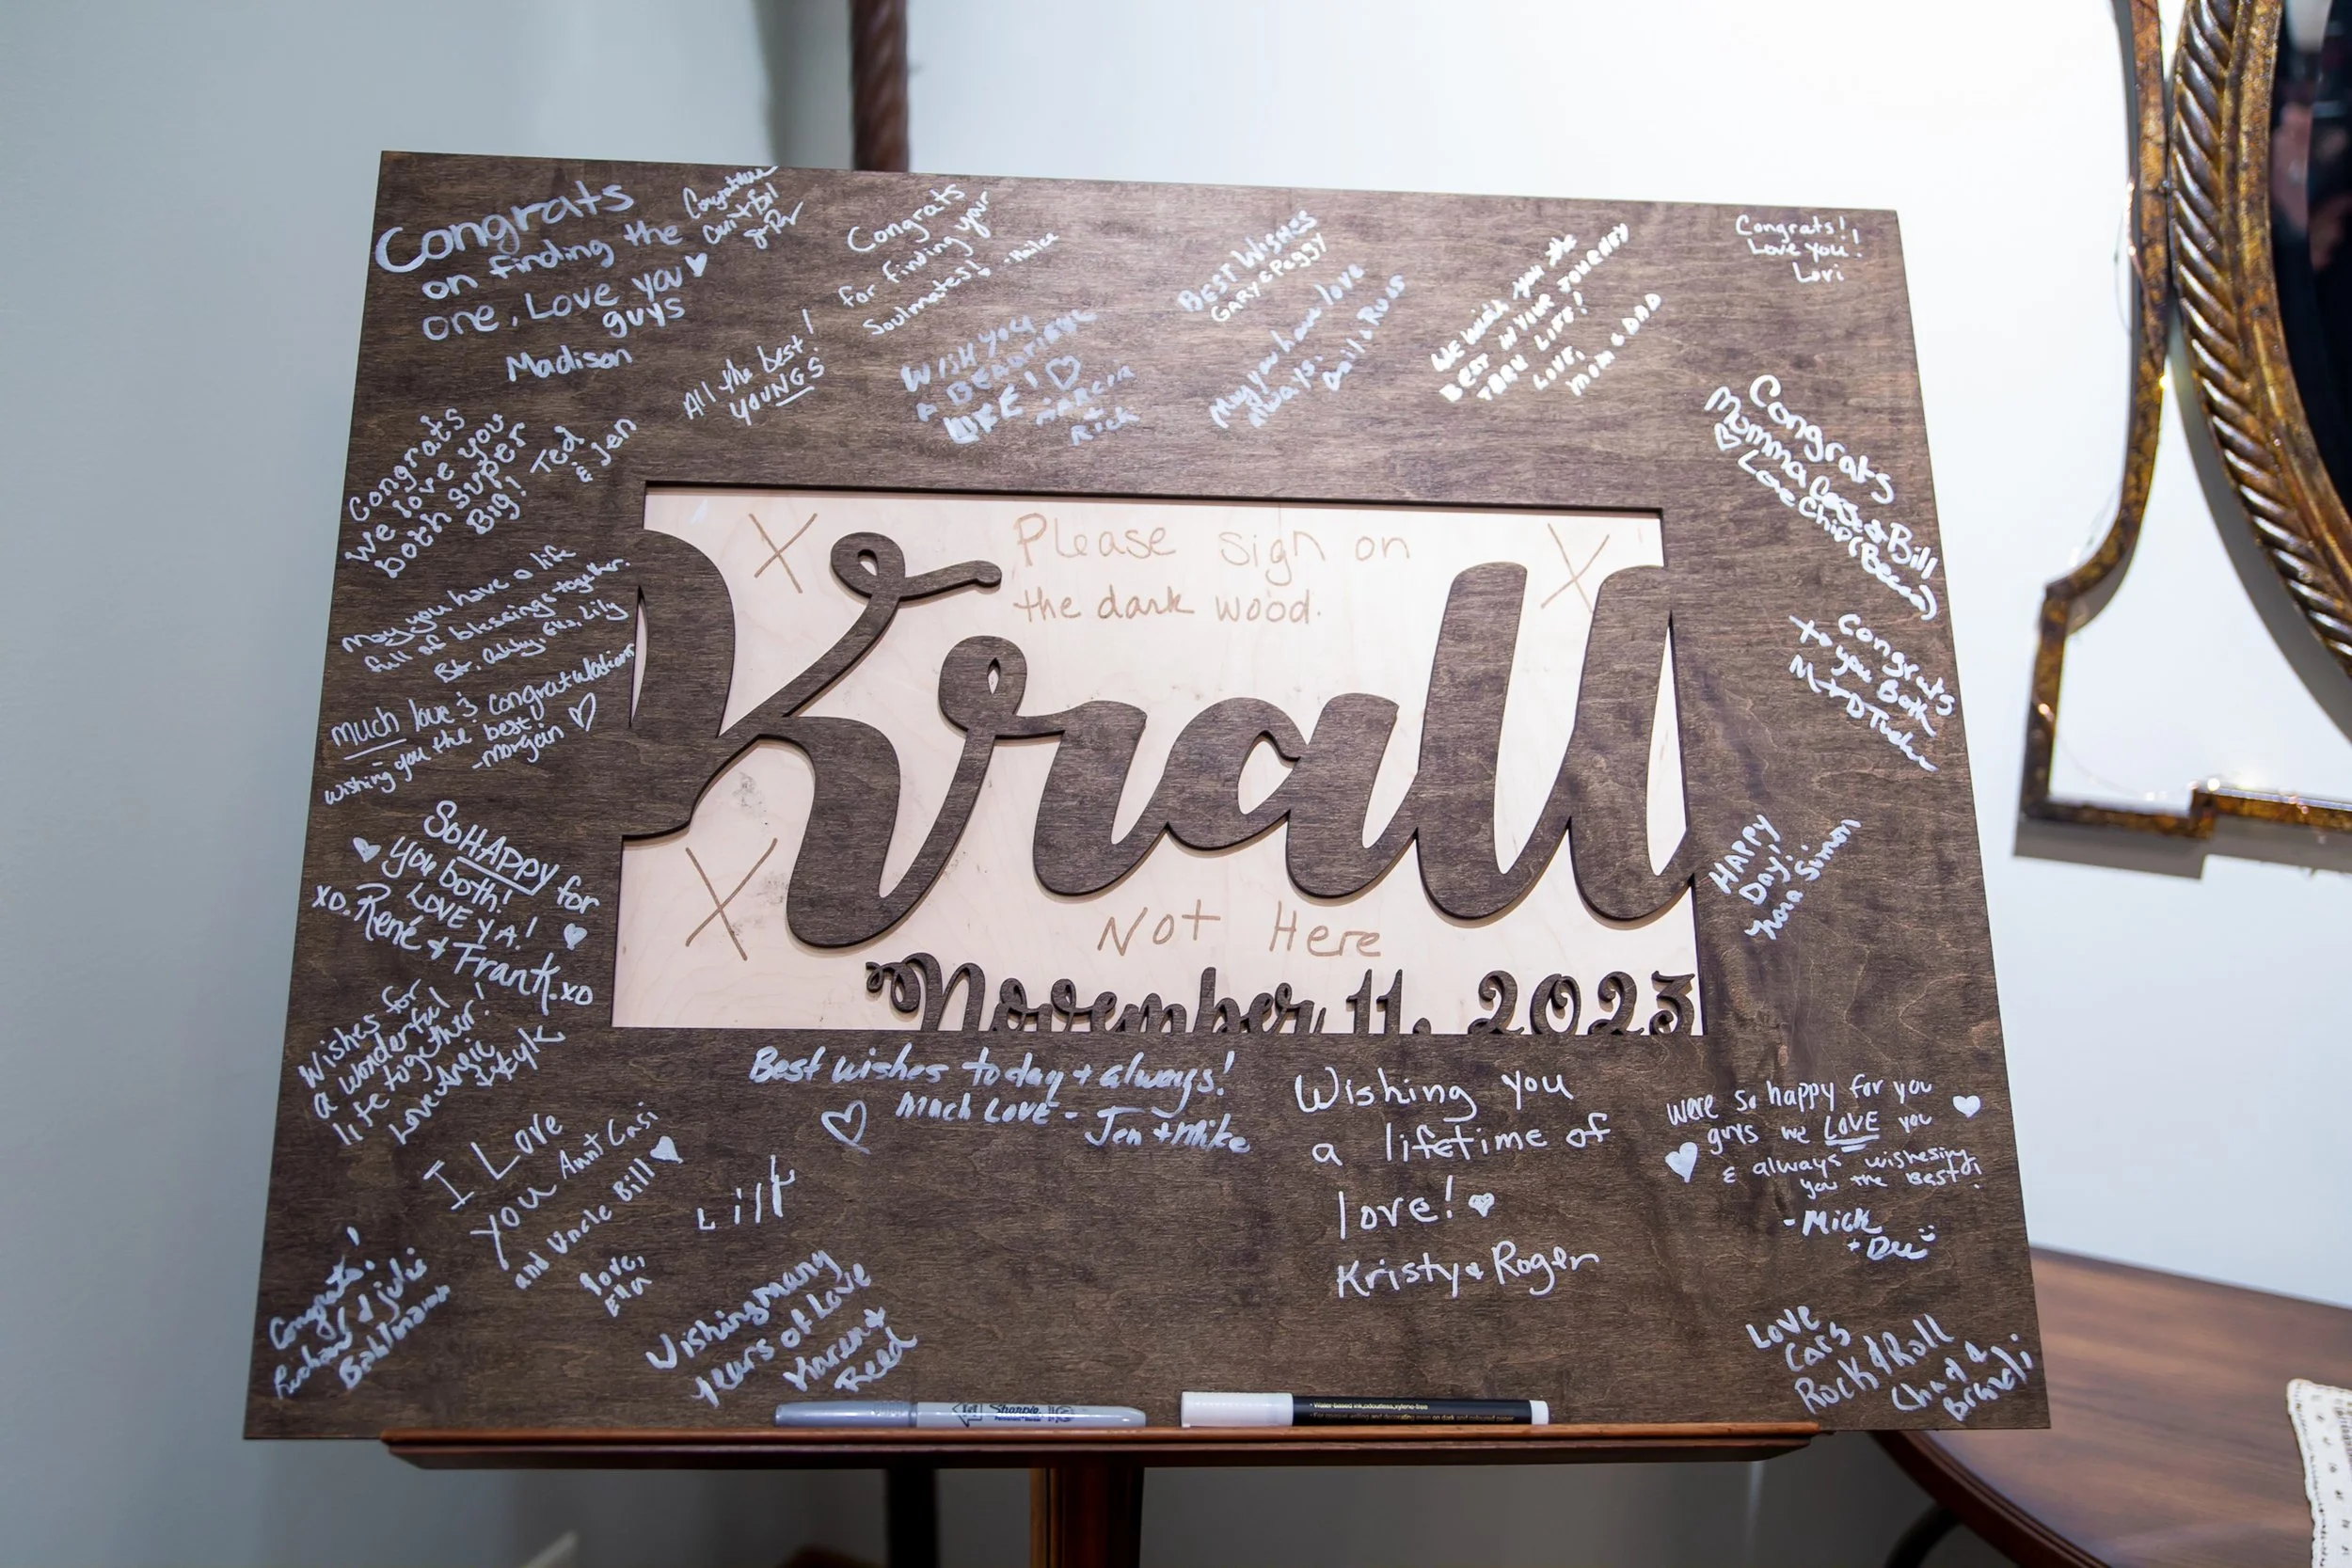 Congrats
on finding the
one, Love you
guys
Madison
Congrats
for finding your
Soulmates!
All the best!
YOUNGS
Wish you
A BEAUTIFUL
LIFE!
MARCIA
+
Rick
BEST WISHES
GARY & Peggy
May you have love
always.
Gail & Russ
WE WISH you the
BEST IN YOUR JOURNEY
THRU LIFE!
LOVE,
MOM & DAD
Congrats!!
Love you!
Lori
Congrats
we love you
both super
Big!
Ted
& Jen
Congrats
Momma & Bill
Love Chip
May you have a life
full of blessings together.
Ashby, Ella, Lily
much love & congratulations
wishing you the best!
-morgain
Congrats
to you Both
M + D
Please sign on
the dark wood.
X
X
X
Krall
Not Here
November 11, 2023
SO HAPPY for
you both!
LOVE YA!
xo. René & Frank. xo
HAPPY
Day!
Nora Simon
Wishes for
a wonderful
life together!
Love Angie
Best wishes today + always!
Much Love - Jen + Mike
Wishing you
a lifetime of
love!
Kristy & Roger
were so happy for you
guys we LOVE you
& always wishesing
you the Best!
- Mick
+ Dee
I Love
you Aunt Casi
and Uncle Bill
love,
Ella
Congrats!
Richard & Julie
Wishing many
years of Love
Karen &
Reed
Love
Cars
Rock & Roll
Chad &
Brandi
Sharpie